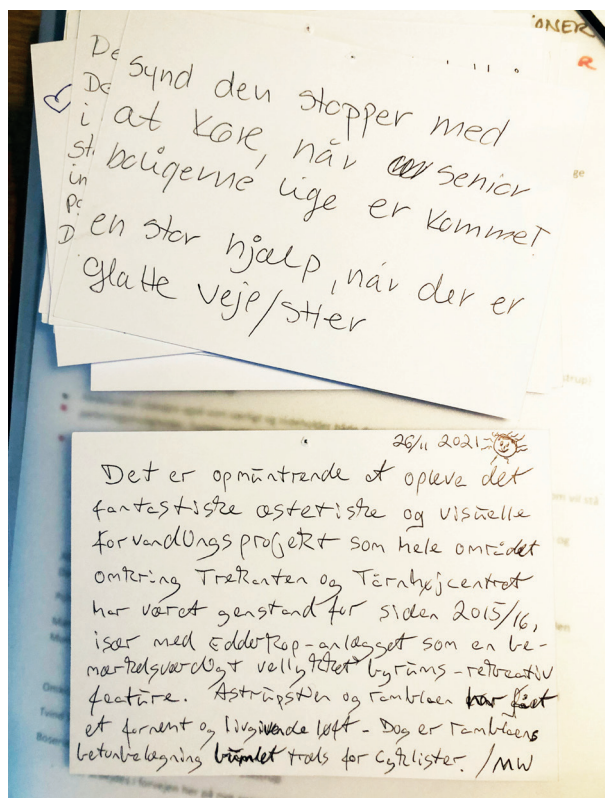 ONER
R
De
De
i
st
in
D
Synd den stopper med
at køre, når senior
boligerne lige er kommet
en stor hjælp, når der er
Glatte veje/stier
26/11 2021
Det er opmuntrende at opleve det
fantastiske æstetiske og visuelle
forvandlingsprojekt som hele området
omkring Trekanten og Tårnhøjcentret
har været genstand for siden 2015/16,
især med Edderkop-anlægget som en be-
mærkelsværdigt vellykket byrums-rekreativ
feature. Astrupstien og ramblaen har fået
et fornemt og livgivende løft - Dog er ramblaens
betonbelægning træls for cyklister. /MW